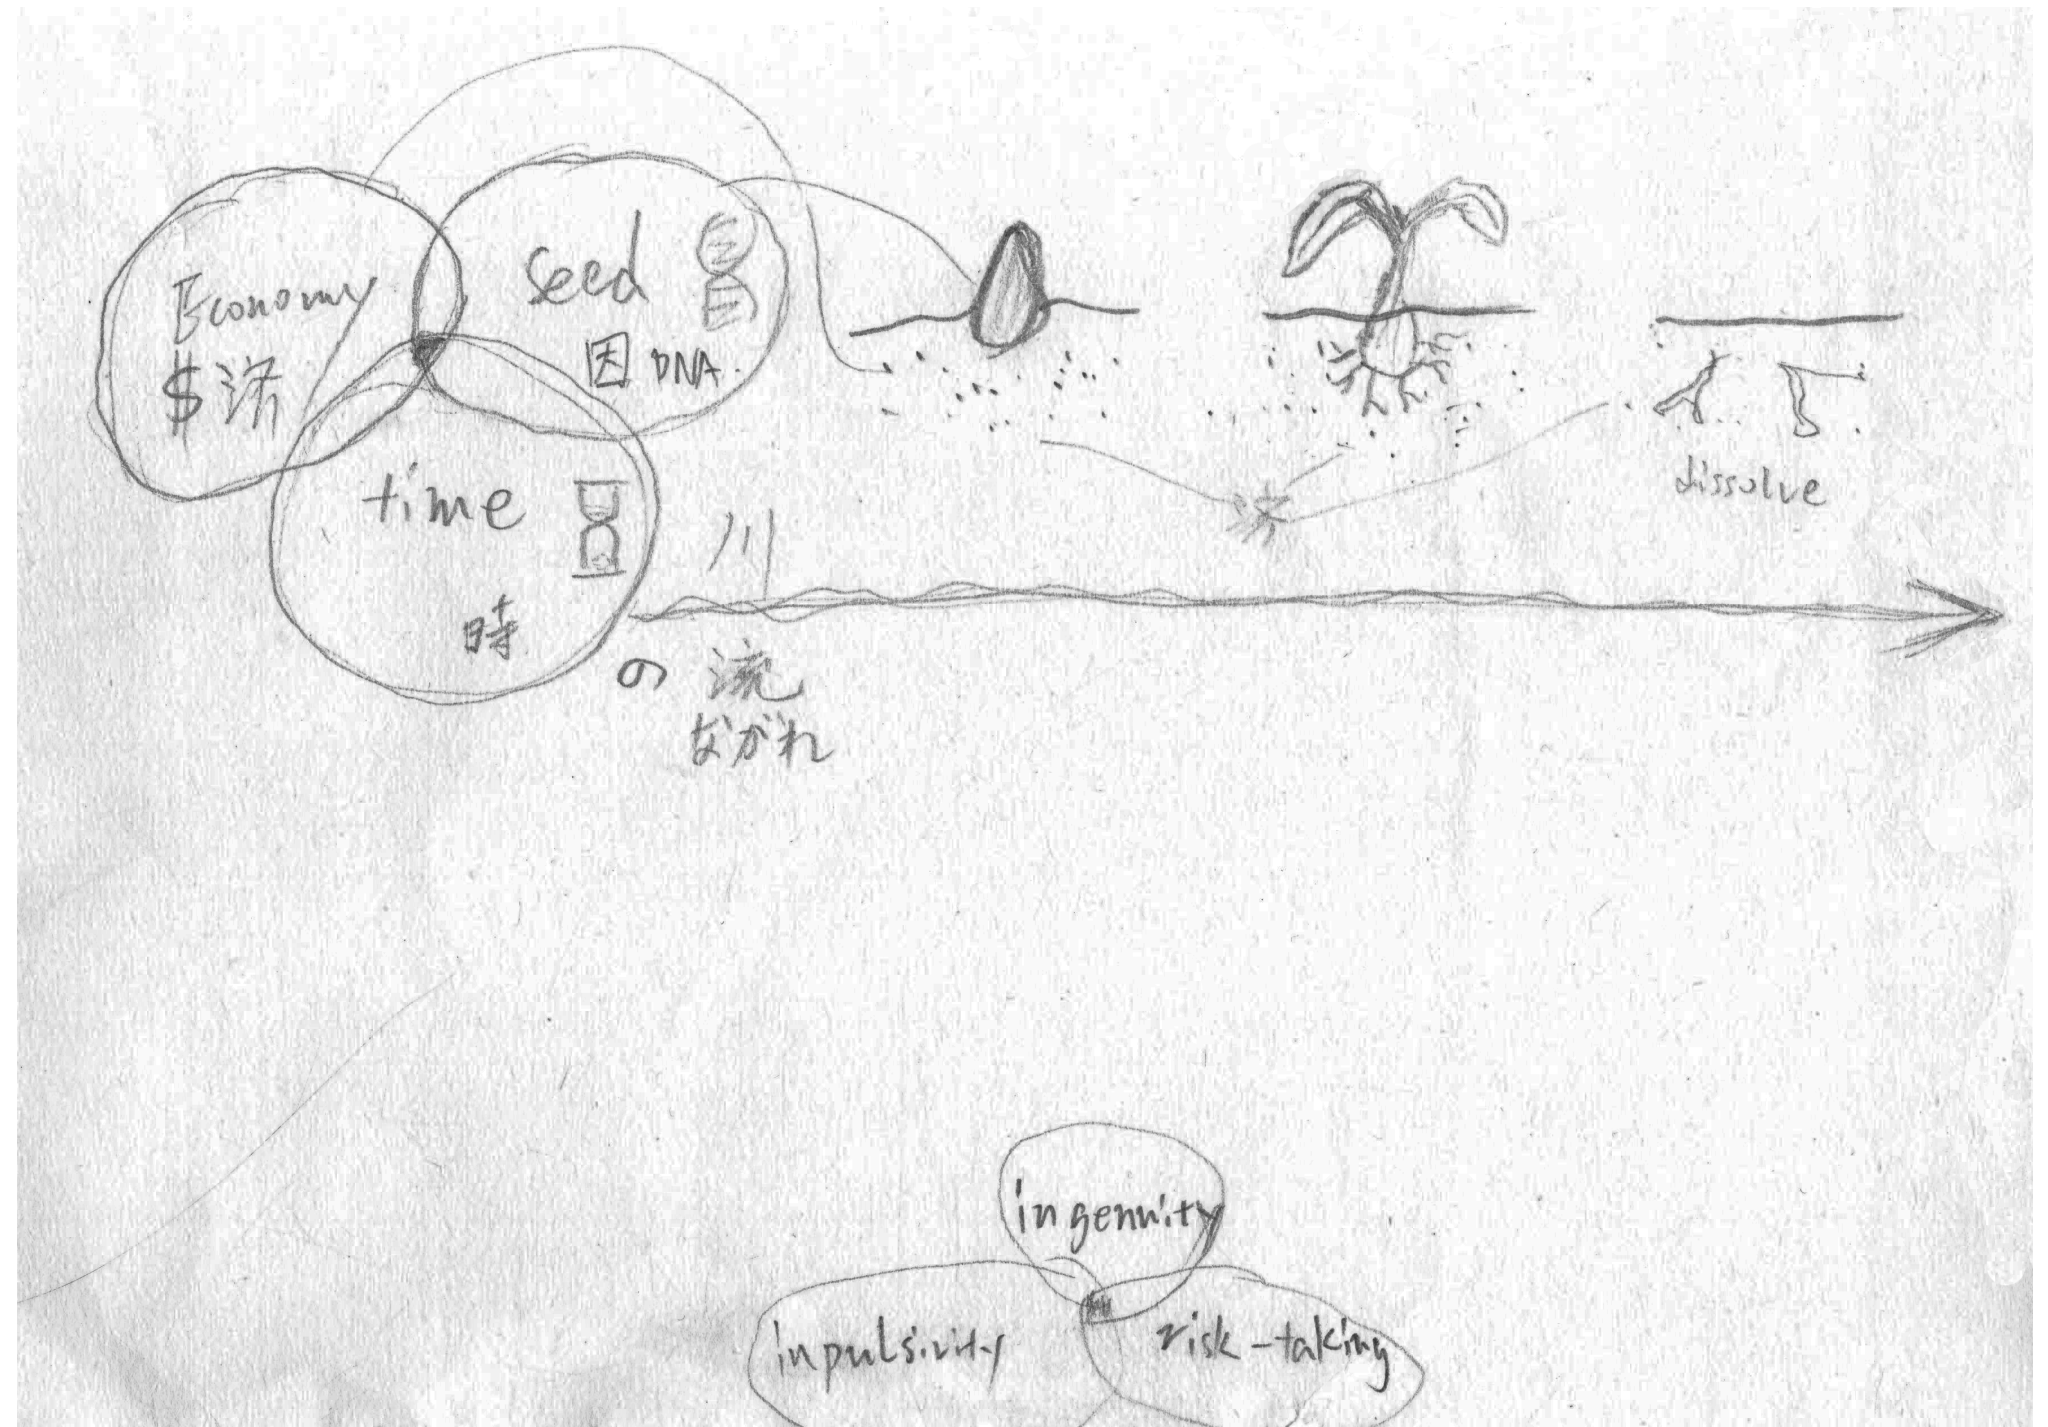 Economy
$ 済
seed
因 DNA
time
時
川
の 流
ながれ
dissolve
ingenuity
inpulsivity
risk-taking